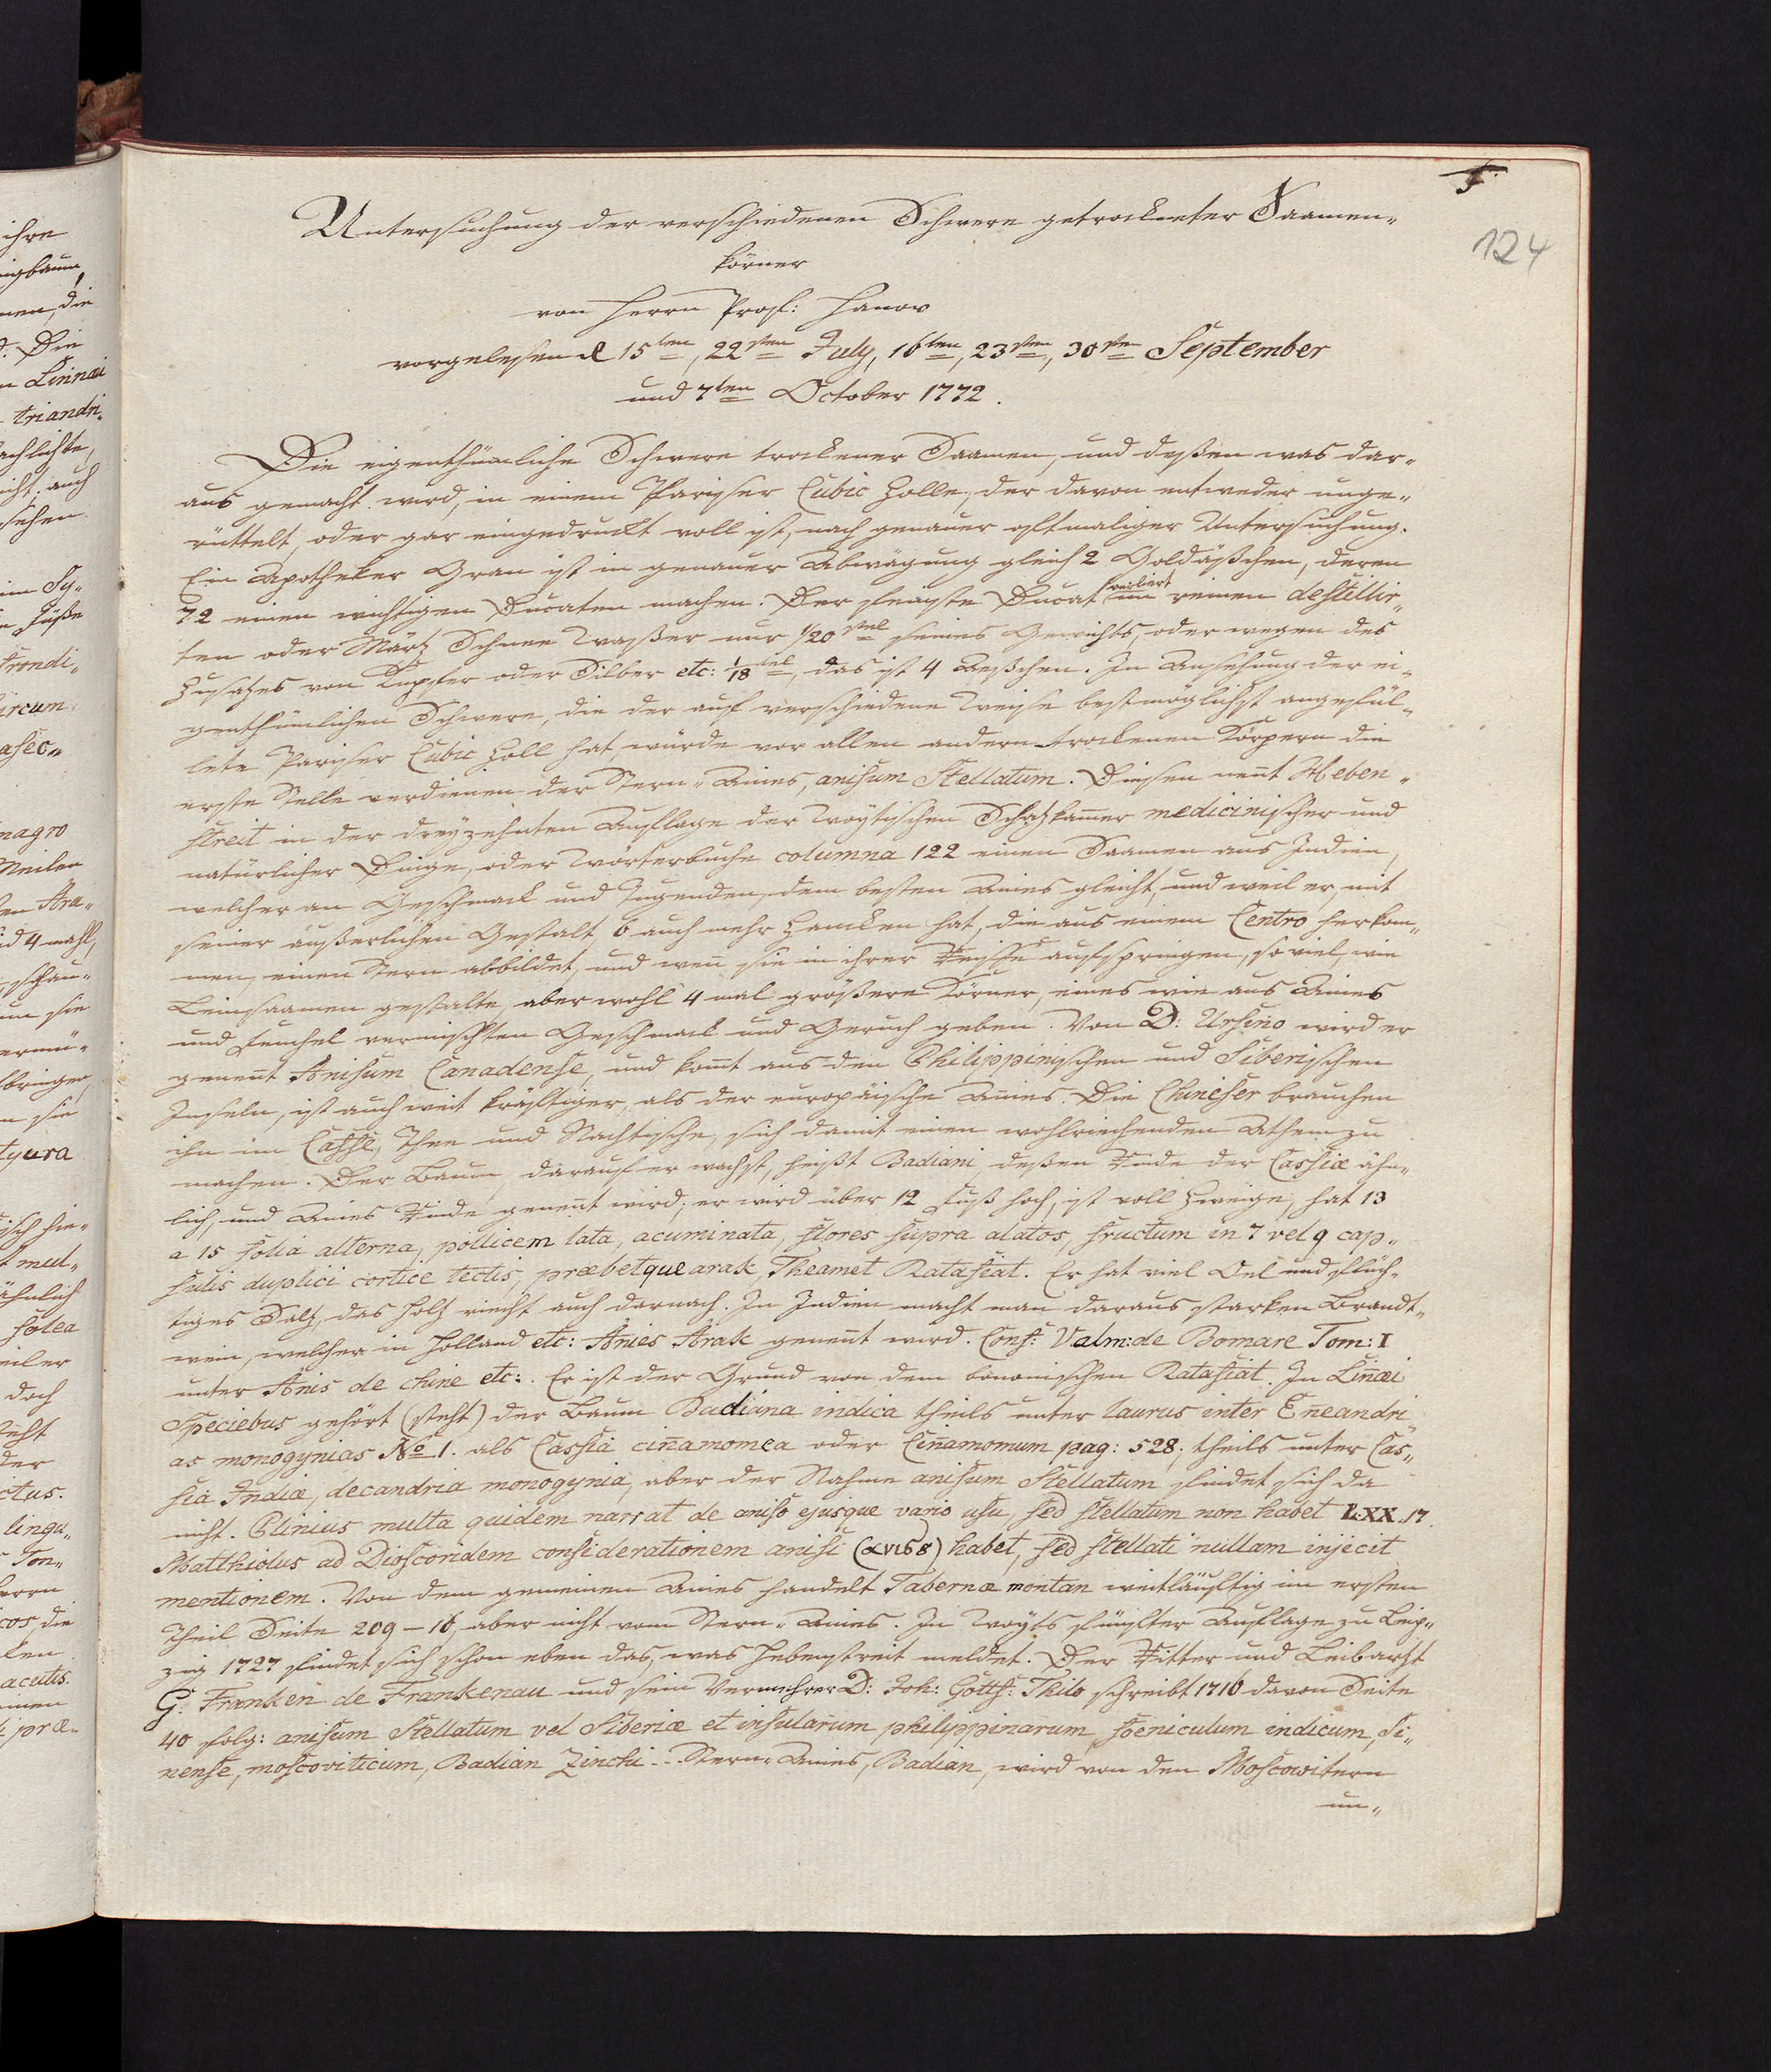 5.
124
Untersuchung der verschiedenen Schwere getrockneter Saamen-
körner
von Herrn Prof: Hanov
vorgelesen d 15ten, 22sten July, 16ten, 23sten, 30ste September
und 7ten October 1772.
Die eigenthümliche Schwere trockener Saamen, und deßen was dar-
aus gemacht wird, in einem Pariser Cubic Zolle, der davon entweder unge-
rüttelt, oder gar eingedruckt voll ist, nach genauer oftmaliger Untersuchung.
Ein Apotheker Gran ist in genauer Abwägung gleich 2 Goldäßchen, deren
72 einen wichtigen Ducaten machen. Der feinste Ducat verliert im reinen destillir-
ten oder Märtz Schnee Waßer nur 1/20stel seines Gewichts, oder wegen des
Zusatzes von Kupfer oder Silber etc: 1/18tel, das ist 4 Aeßchen. In Ansehung der ei-
genthümlichen Schwere, die der auf verschiedene Weise bestmöglichst angefül-
lete Pariser Cubic Zoll hat, würde vor allen andern trockenen Körpern die
erste Stelle verdienen der Stern-Anies, anisum Stellatum. Diesen nen̄t Heben-
streit in der dreyzehnten Auflage der Woytischen Schatzkam̄er medicinischer und
natürlicher Dinge, oder Wörterbuche columna 122 einen Saamen aus Indien,
welcher an Geschmack und Tugenden, dem besten Anies gleicht, und weil er, mit
seiner äußerlichen Gestalt, 6 auch mehr Zancken hat, die aus einem Centro herkom-
men, einen Stern abbildet, und wen̄ sie in ihrer Reiffe aufspringen, so viel, wie
Leinsaamen gestalte, aber wohl 4 mal größere Körner, eines wie aus Anies
und Fenchel vermischten Geschmack und Geruch geben. Von D: Ursino wird er
genen̄t Anisum Canadense, und kom̄t aus den Philippinischen und Siberischen
Inseln, ist auch weit kräftiger, als der europäische Anies. Die Chineser brauchen
ihn im Caffé, Thee und Nachtische, sich damit einen wohlriechenden Athem zu
machen. Der Baum darauf er wachst, heißt Badiani, deßen Rinde der Cassiæ ähn-
lich, und Anies Rinde genen̄t wird; er wird über 12 Fuß hoch, ist voll Zweige, hat 13
a 15 folia alterna, pollicem lata, acuminata, flores supra alatos, fructum in 7 vel 9 cap-
sulis duplici cortice tectis, præbetque arak, Theamet Ratafiat. Er hat viel Oel und flüch-
tiges Saltz, das Holtz riecht auch darnach. In Indien macht man daraus starken Brandt-
wein, welcher in Holland etc: Anies Arak genen̄t wird. Conf: Valm: de Bomare Tom: I
unter Anis de chine etc:. Er ist der Grund von dem bononischen Ratafiat. In Lin̄æi
Speciebus gehört (steht) der Baum Badiana indica theils unter laurus inter En̄eandri
as monogynias No 1. als Cassia cin̄amomea oder Cin̄amomum pag: 528; theils unter Cas-
sia Indiæ, decandria monogynia, aber der Nahme anisum Stellatum findet sich da
nicht. Plinius multa quidem narrat de aniso ejusque vario usu, sed stellatum non habet L: XX. 17.
Matthiolus ad Dioscoridem considerationem anisi habet, sed stellati nullam injecit
mentionem. Von dem gemeinen Anies handelt Tabernæ montan weitläuftig im ersten
Theil Seite 209-16, aber nicht vom Stern-Anies. In Woyts fünfter Auflage zu Leip-
zig 1727 findet sich schon eben das, was Hebenstreit meldet. Der Ritter und Leibartzt
G: Franken de Frankenau und sein Vermehrer D: Joh: Gottf: Thilo schreibt 1716 davon Seite
40 folg: anisum Stellatum vel Siberiæ et insularum philippinarum foeniculum indicum, Si-
nense, moscoviticum, Badian Zinchi .. Stern-Anies, Badian, wird von den Moscowitern
un-